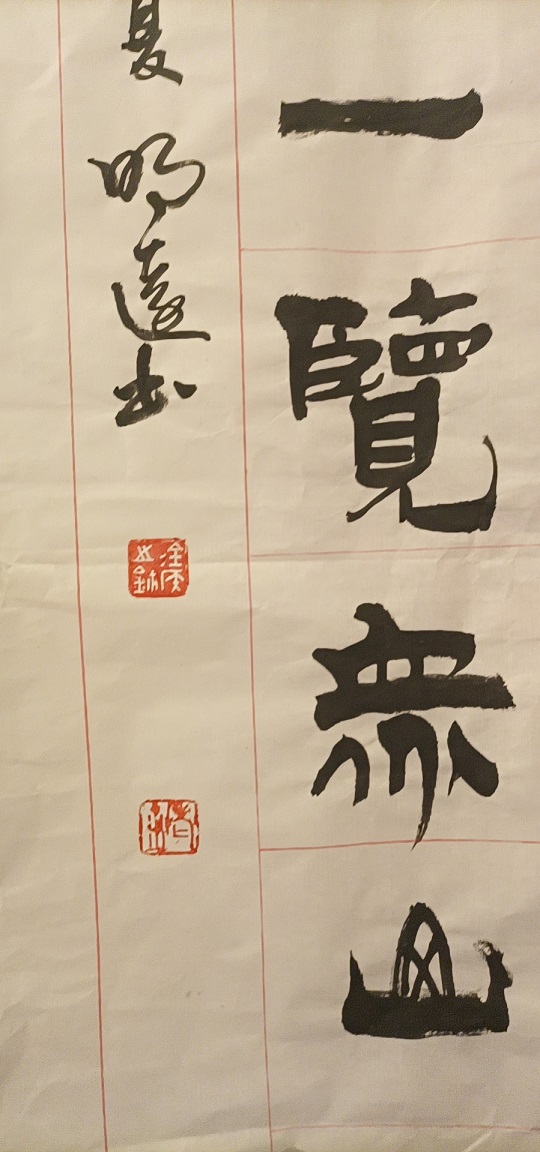 一覽衆山
夏明遠書